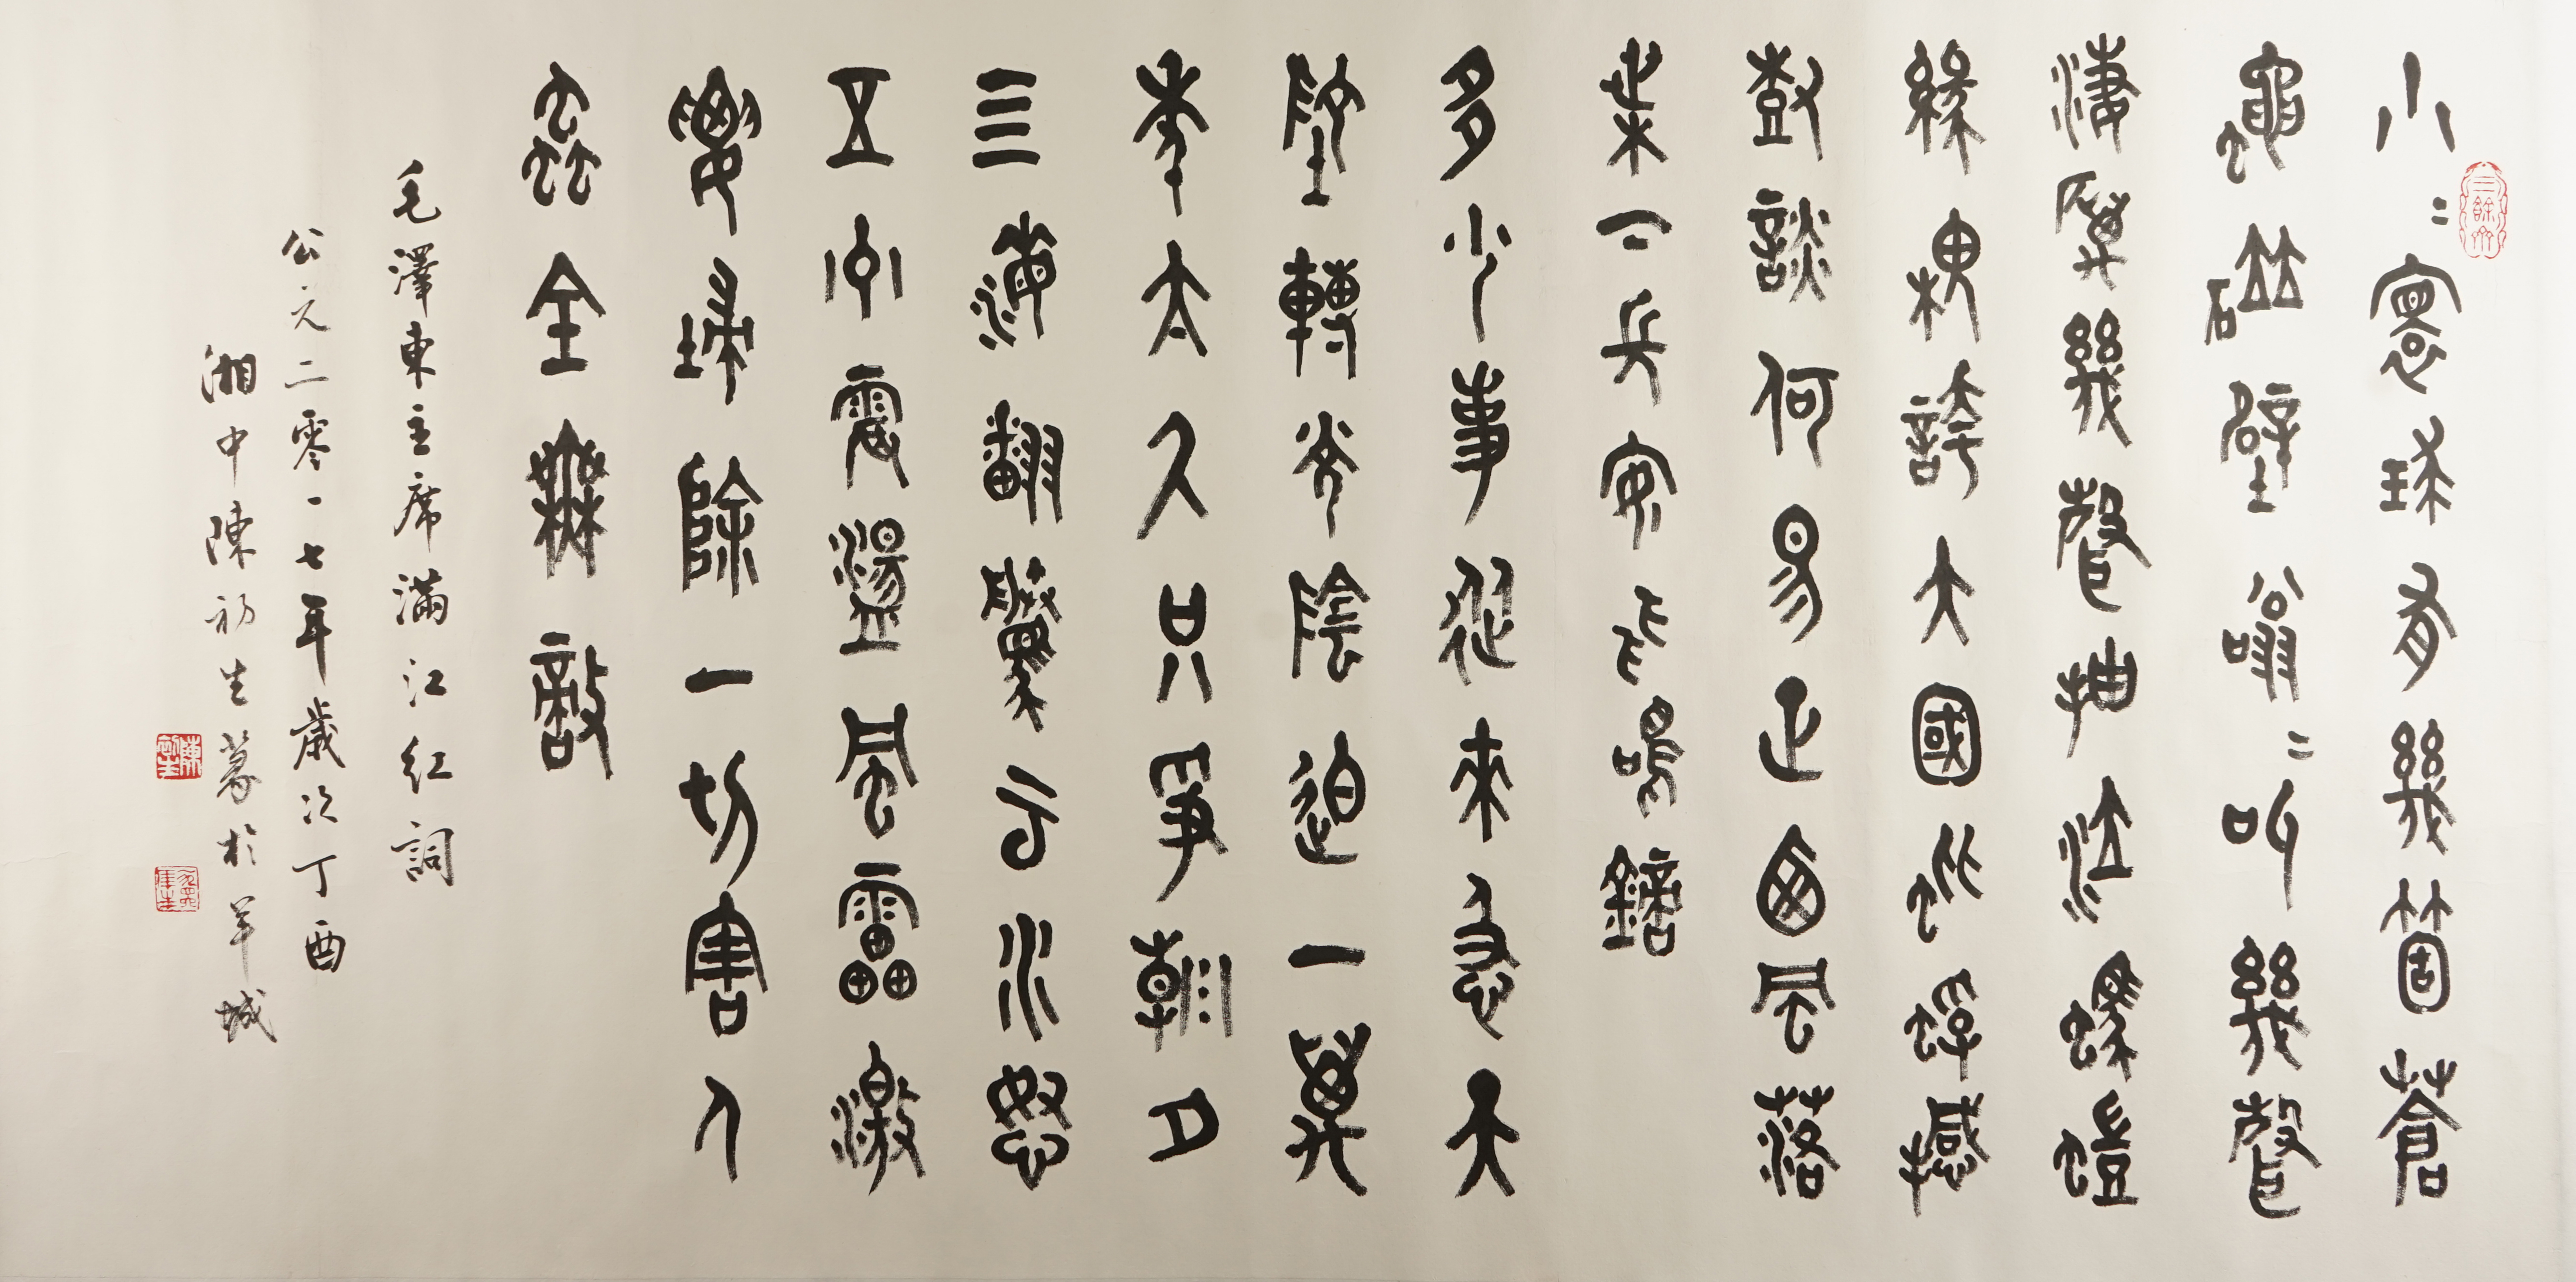 小〻寰球有幾箇蒼
蠅碰壁嗡〻叫幾聲
淒厲幾聲抽泣螞蟻
緣槐誇大國蚍蜉撼
樹談何易正西風落
葉下長安飛鳴鏑
多少事從來急天
地轉光陰迫一萬
年太久只爭朝夕
四海翻騰雲水怒
五洲震盪風雷激
要掃除一切害人
蟲全無敵
毛澤東主席滿江紅詞
公元二零一七年歲次丁酉
湘中陳初生篆於羊城
陳初生